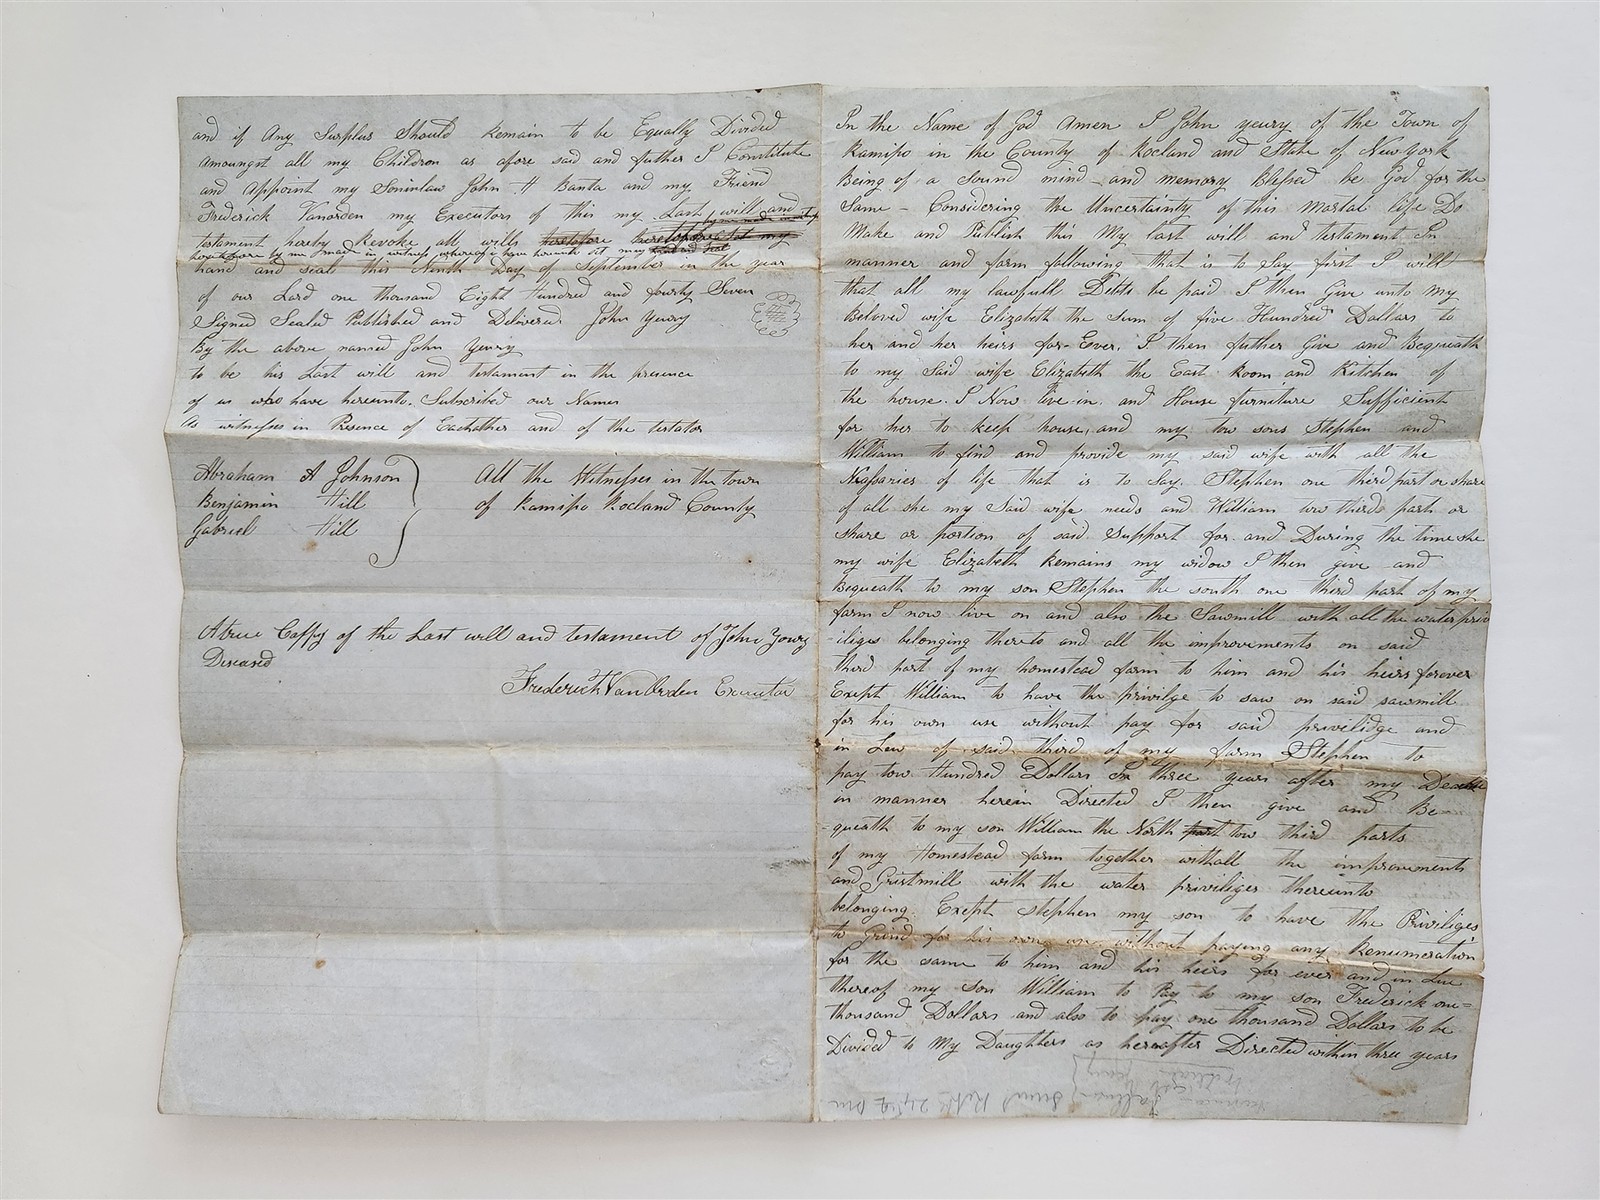 In the Name of God Amen I John yeury of the Town of
Ramapo in the County of Rocland and State of New york
Being of a Sound mind and memory Blessed be God for the
Same - Considering the Uncertainty of this Mortal life Do
Make and Publish this My last will and testament In
manner and form following that is to Say first I will
that all my lawfull Debts be paid I then Give unto My
Beloved wife Elizabeth the Sum of five Hundred Dollars to
her and her heirs for-Ever. I then futher Give and Bequeath
to my Said wife Elizabeth the East Room and Kitchen of
the house. I Now live-in. and House furniture Sufficient
for her to keep house, and my tow sons Stephen and
William to find and provide my said wife with all the
of life that is to Say. Stephen one third part or share
of all she my Said wife needs and William tow thirds part or
share or portion of said Support for and During the time she
my wife Elizabeth Remains my widow I then give and
Bequeath to my son Stephen the south one third part of my
farm I now live on and also the Sawmill with all the water priv
-iliges belonging thereto and all the improvements on said
third part of my homestead farm to him and his heirs forever
Exept William to have the privilge to saw on said sawmill
for his own use without pay for said privilidge and
in Lew of said third of my farm Stephen to
pay tow Hundred Dollars In three years after my
in manner herein Directed I then give and Be
-queath to my son William the North part tow third parts
of my Homestead farm together withall the improvements
and Gristmill with the water priviliges thereunto
belonging. Exept Stephen my son to have the Priviliges
to Grind for his own use without paying any Renumeration
for the same to him and his heirs for ever and in Lew
thereof my Son William to Pay to my son Frederick one=
thousand Dollars and also to pay one thousand Dollars to be
Divided to My Daughters as hereafter Directed within three years
and if Any Surplus Should Remain to be Equally Divided
Amoungst all my Children as afore said and futher I Constitute
and Appoint my Soninlaw John H Banta and my Friend
Frederick Vanorden my Executors of this my Last will and
testament hereby Revoke all wills heretofore
heretofore by me made in witness whereof i have hereunto set my
hand and seal this Ninth Day of September in the year
of our Lord one thousand Eight Hundred and fourty Seven
Signed Sealed Published and Delivered John Yeury
By the above named John Yeury
to be his Last will and testament in the presence
of us who have hereunto. Subscribed our Names
As witnesses in Presence of Eachother and of the testator
Abraham A Johnson
Benjamin Hill
Gabriel Hill
All the Witnesses in the town
of Ramapo Rocland County
A true Coppy of the Last will and testament of John Youry
Diseased
Frederick Van Orden Executor